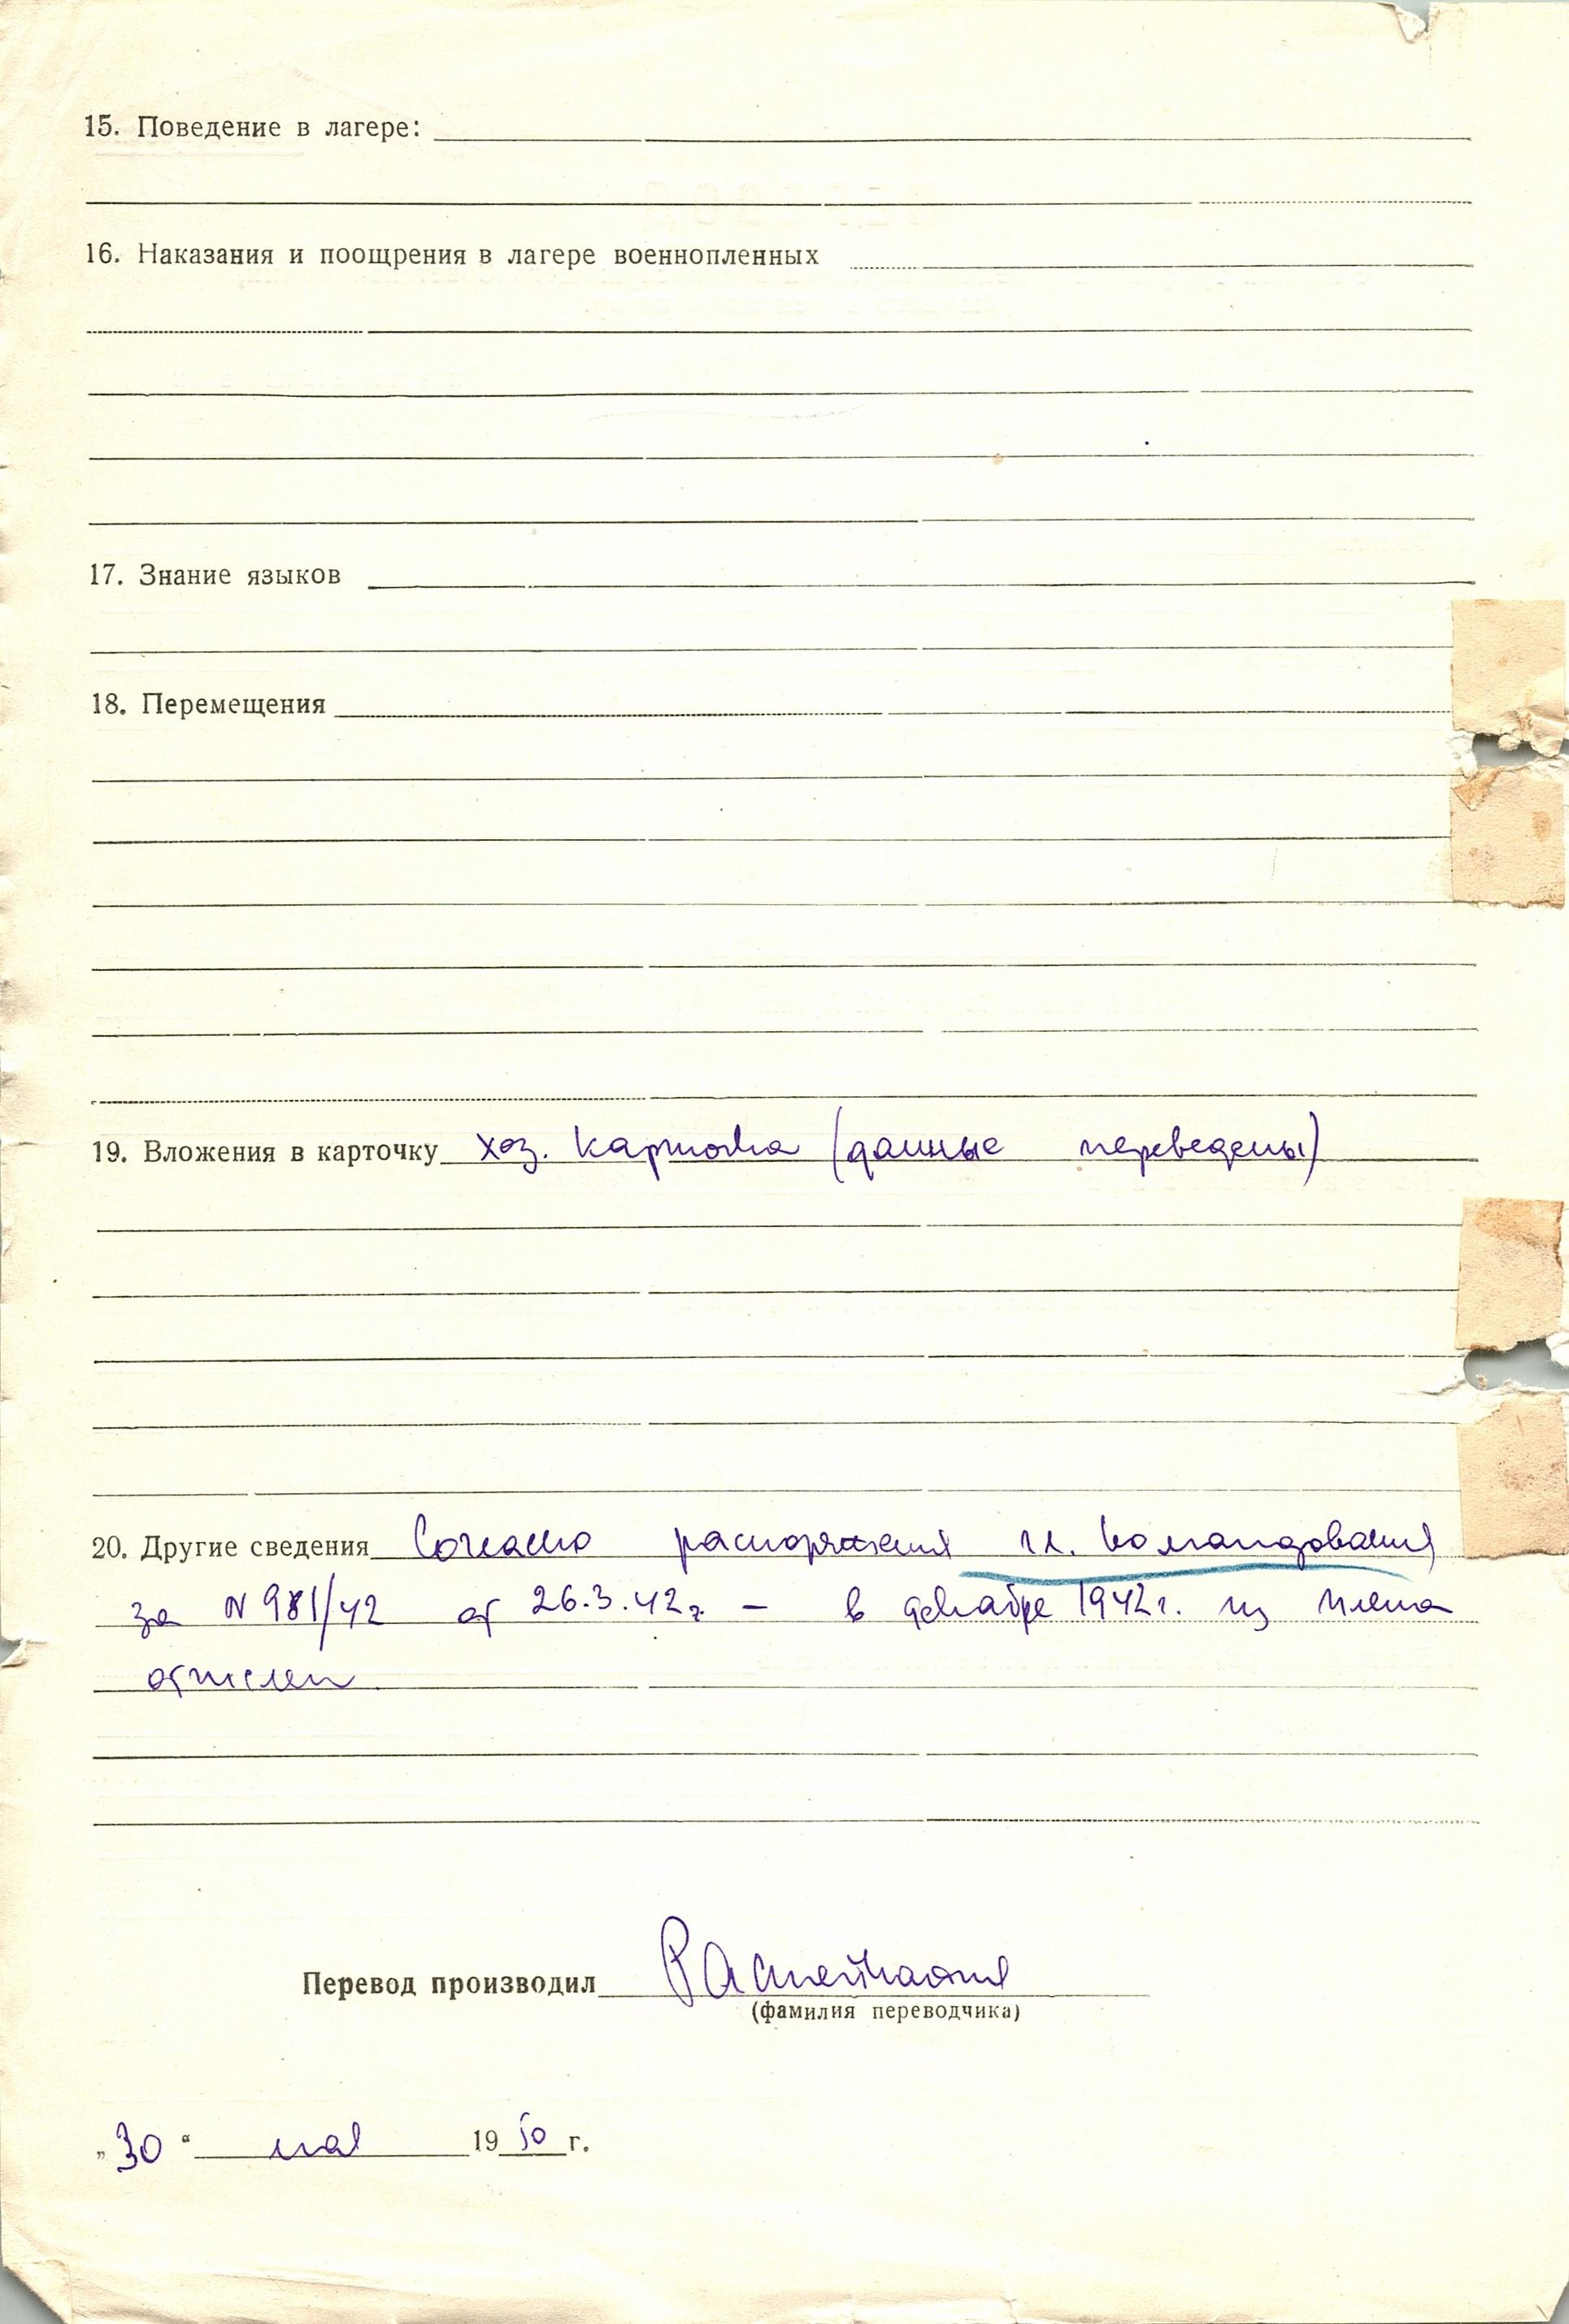 15. Поведение в лагере:
16. Наказания и поощрения в лагере военнопленных
17. Знание языков
18. Перемещения
19. Вложения в карточку хоз. карточка (данные переведены)
20. Другие сведения Согласно распоряжения гл. командования
за N 981/42 от 26.3.42г. – в декабре 1942г. из плена
отчислен
Перевод производил
(фамилия переводчика)
„30“ мая 1950 г.